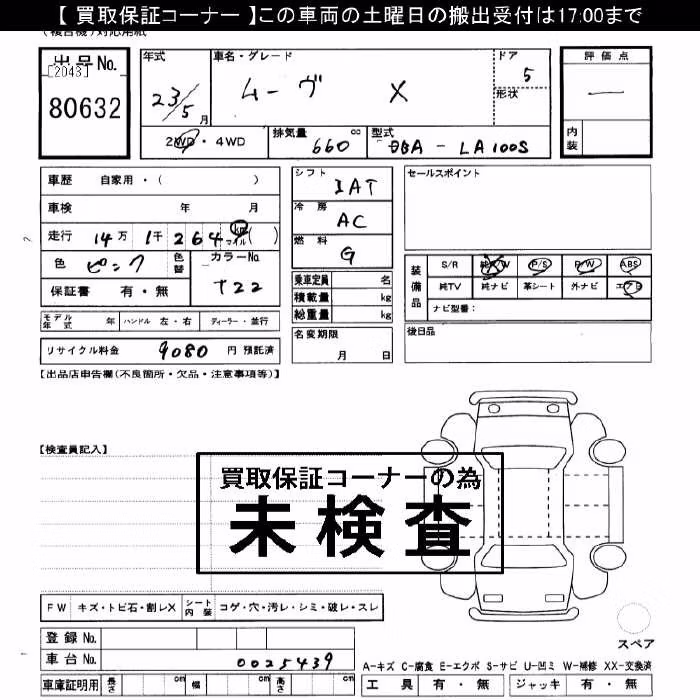 【 買取保証コーナー 】この車両の土曜日の搬出受付は17:00まで
(複合機)対応用紙
出品No.
[2043]
80632
年式
23/5月
車名・グレード
ムーヴ X
ドア
5
形状
評価点
—
内装
2WD・4WD
排気量 660 cc
型式 DBA - LA100S
車歴 自家用・( )
車検 年 月
走行 14万 1千 264 km マイル ( )
色 ピンク
色替
カラーNo.
T22
保証書 有・無
シフト
IAT
冷房
AC
燃料
G
乗車定員 名
積載量 kg
総重量 kg
セールスポイント
装備品
S/R 純A/W P/S P/W ABS
純TV 純ナビ 革シート 外ナビ エアB
ナビ型番:
モデル年式 年 ハンドル 左・右 ディーラー・並行
名変期限
月 日
後日品
リサイクル料金 9080 円 預託済
【出品店申告欄(不良箇所・欠品・注意事項等)】
【検査員記入】
買取保証コーナーの為
未検査
FW キズ・トビ石・割レX シート内装 コゲ・穴・汚レ・シミ・破レ・スレ
スペア
登録No.
車台No. 0025439
A-キズ C-腐食 E-エクボ S-サビ U-凹ミ W-補修 XX-交換済
車庫証明用 長さ cm 幅 cm 高さ cm
工具 有・無 ジャッキ 有・無